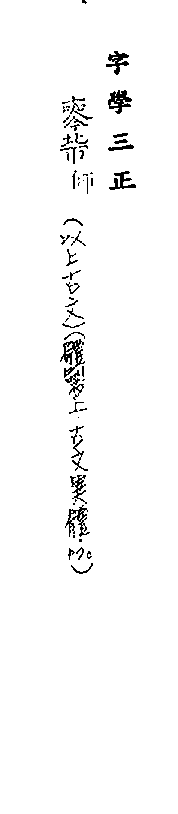 字學三正
師（以上古文）（體製上·古文異體·四〇）